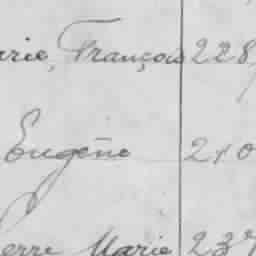 arie, François 228
Eugène 210
ierre Marie 237